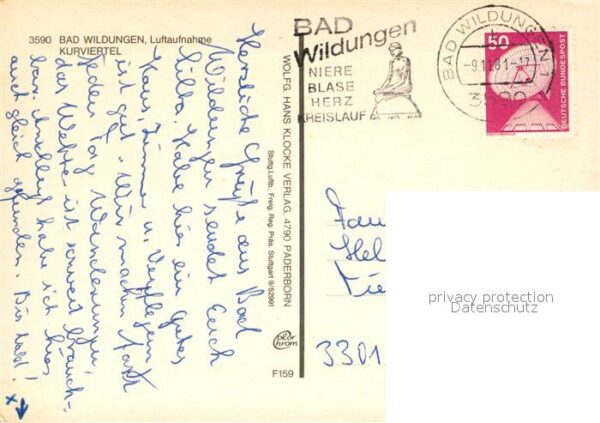 3590 BAD WILDUNGEN, Luftaufnahme
KURVIERTEL
Herzliche Grüße aus Bad
Wildungen sendet Euch
Silke. Habe hier ein gutes
Haus, Zimmer u. Verpflegung
ist gut. Wir machen fast
jeden Tag Wanderungen,
das Wetter ist soweit brauch-
bar. Anschluß habe ich hier
auch gleich gefunden. Bis bald!
WOLFG. HANS KLOCKE VERLAG, 4790 PADERBORN
Stuttg. Luftb., Freig. Reg. Präs. Stuttgart 9/52991
color
chrom
F159
BAD
Wildungen
NIERE
BLASE
HERZ
KREISLAUF
BAD WILDUNGEN 1
-9.11.81-17
3590
50
DEUTSCHE BUNDESPOST
Fam
Hel
Tie
3301
privacy protection
Datenschutz